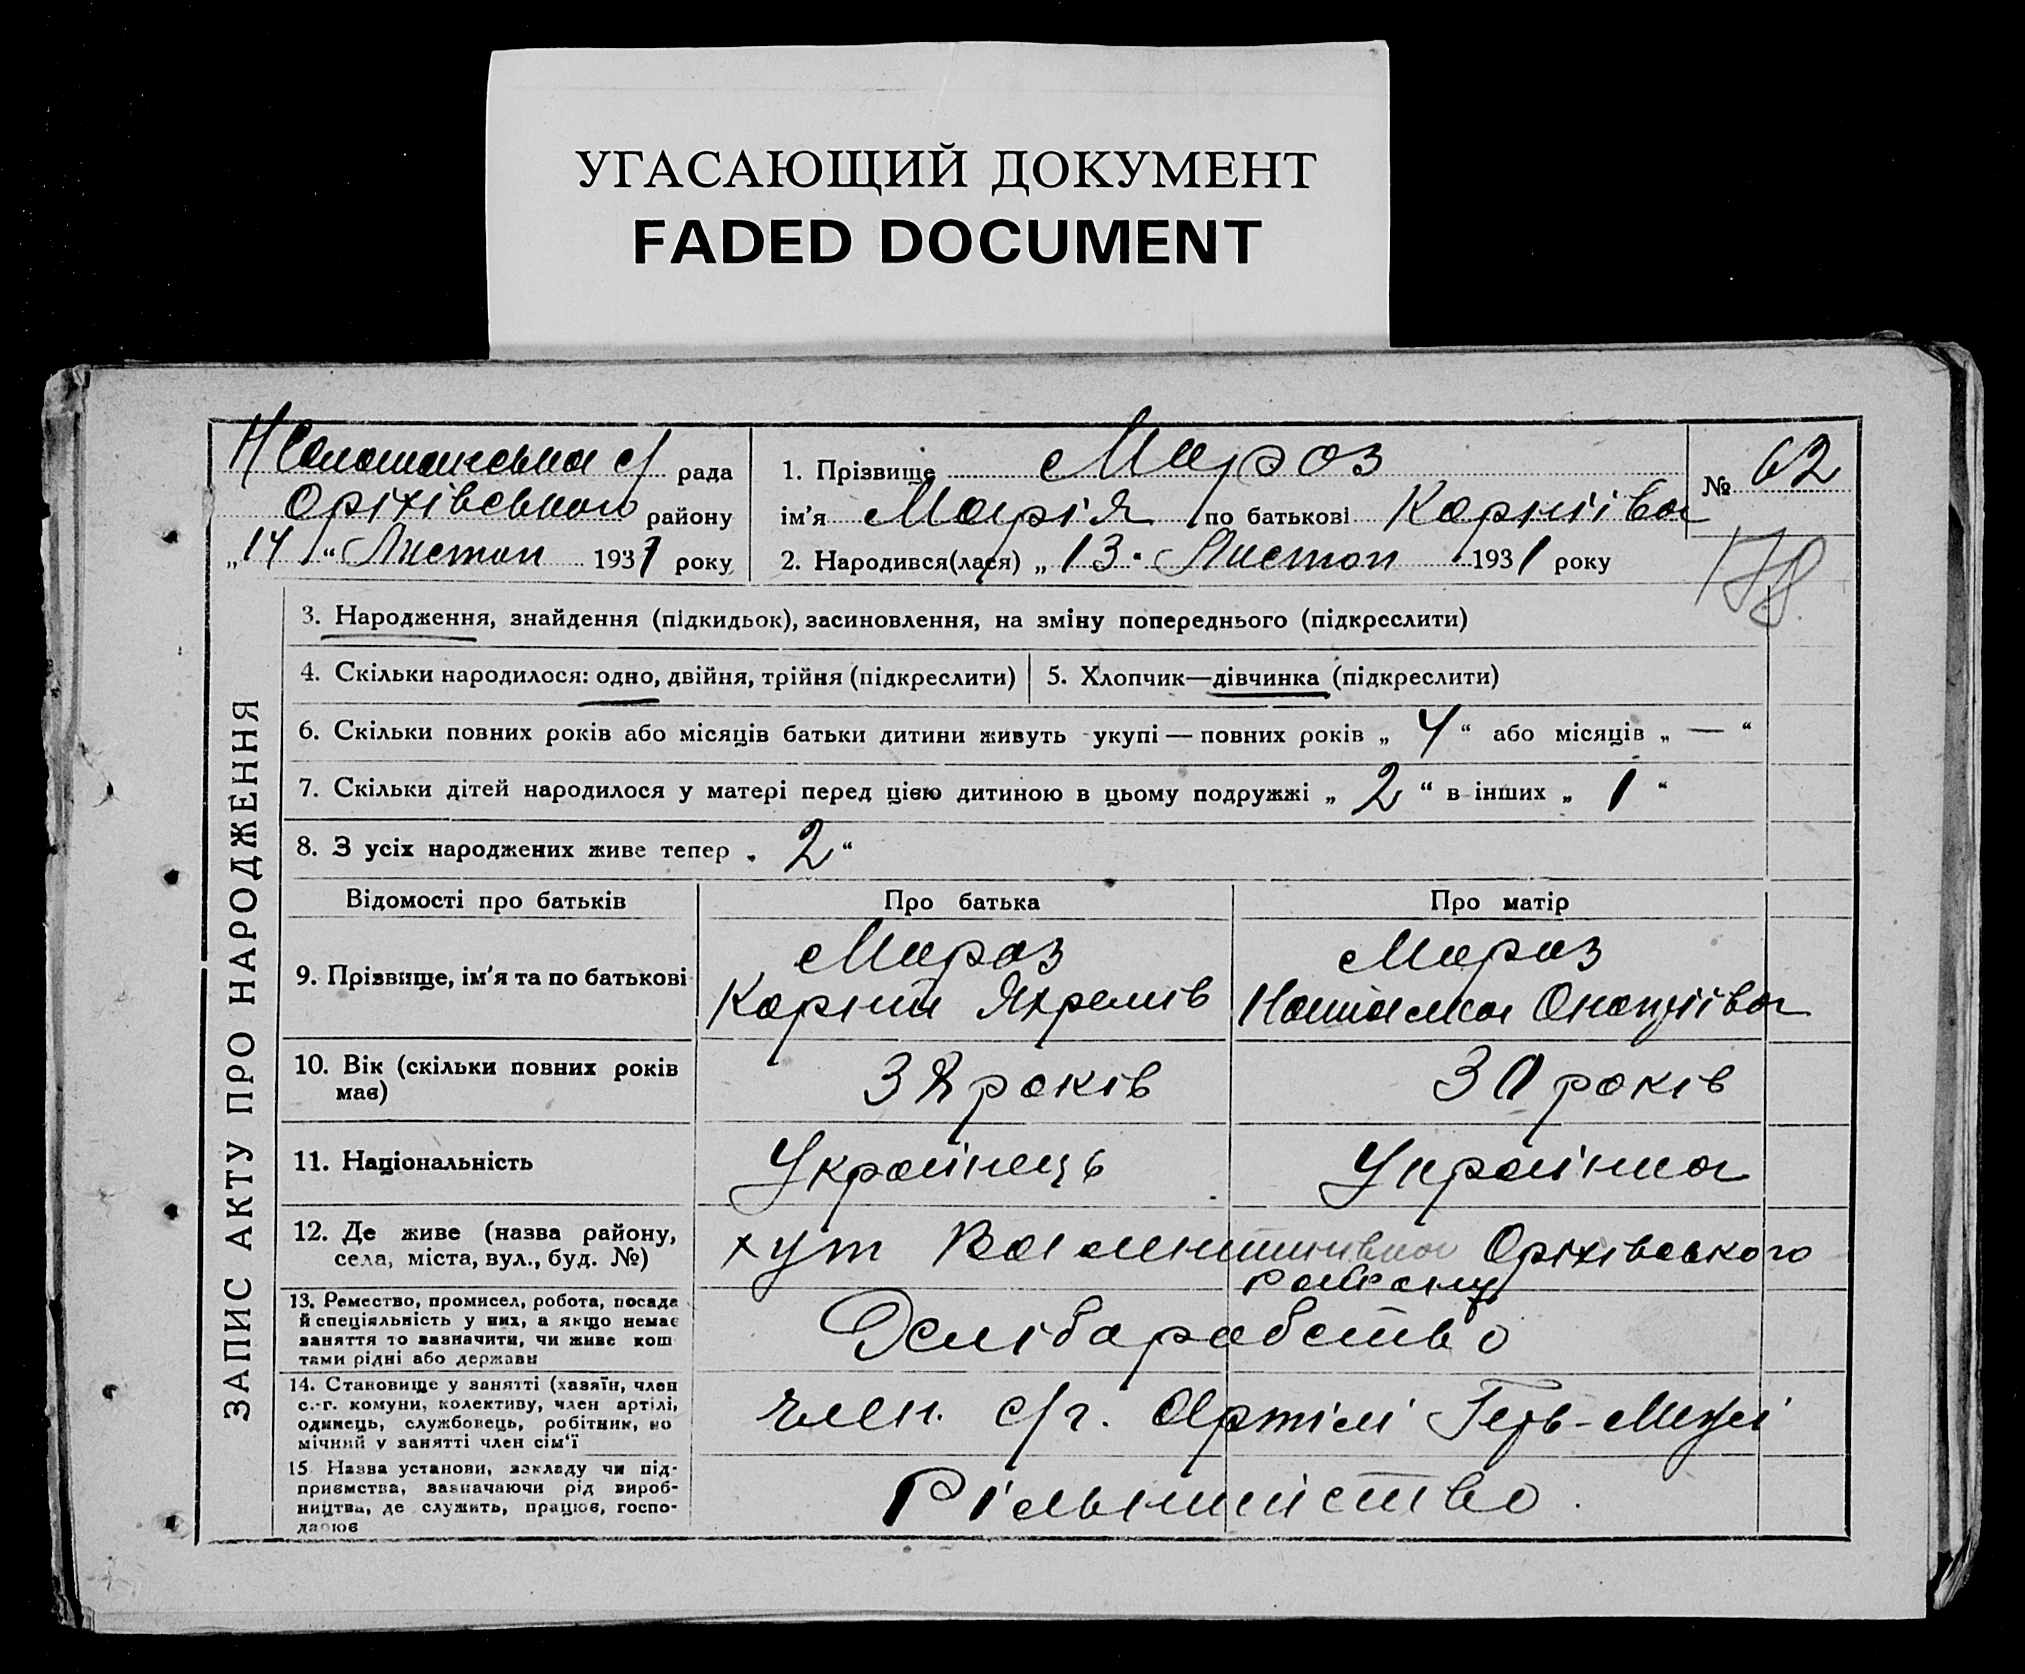 УГАСАЮЩИЙ ДОКУМЕНТ
FADED DOCUMENT
с/ рада
Оріхівського району
„14“ Листоп 1931 року
1. Прізвище Мироз
ім'я Марія по батькові Корніїва
2. Народився(лася) „13. Листоп 1931 року
№ 62
178
ЗАПИС АКТУ ПРО НАРОДЖЕННЯ
3. Народження, знайдення (підкидьок), засиновлення, на зміну попереднього (підкреслити)
4. Скільки народилося: одно, двійня, трійня (підкреслити)
5. Хлопчик—дівчинка (підкреслити)
6. Скільки повних років або місяців батьки дитини живуть укупі — повних років „ 4 “ або місяців „ — “
7. Скільки дітей народилося у матері перед цією дитиною в цьому подружжі „ 2 “ в інших „ 1 “
8. З усіх народжених живе тепер „ 2 “
Відомості про батьків
Про батька
Про матір
9. Прізвище, ім'я та по батькові
Мироз
Корній Яхремів
Мироз
Наталка
10. Вік (скільки повних років
має)
32 років
30 років
11. Національність
Українець
Українка
12. Де живе (назва району,
села, міста, вул., буд. №)
хут Валентинівка Оріхівського
району
13. Ремество, промисел, робота, посада
й спеціяльність у них, а якщо немає
заняття то зазначити, чи живе кош
тами рідні або держави
14. Становище у занятті (хазяїн, член
с.-г. комуни, колективу, член артілі,
одинець, службовець, робітник, по
мічний у занятті член сім'ї
член. с/г. Артілі
15. Назва установи, закладу чи під-
приємства, зазначаючи рід вироб-
ництва, де служить, працює, госпо-
дарює
Рільництво.